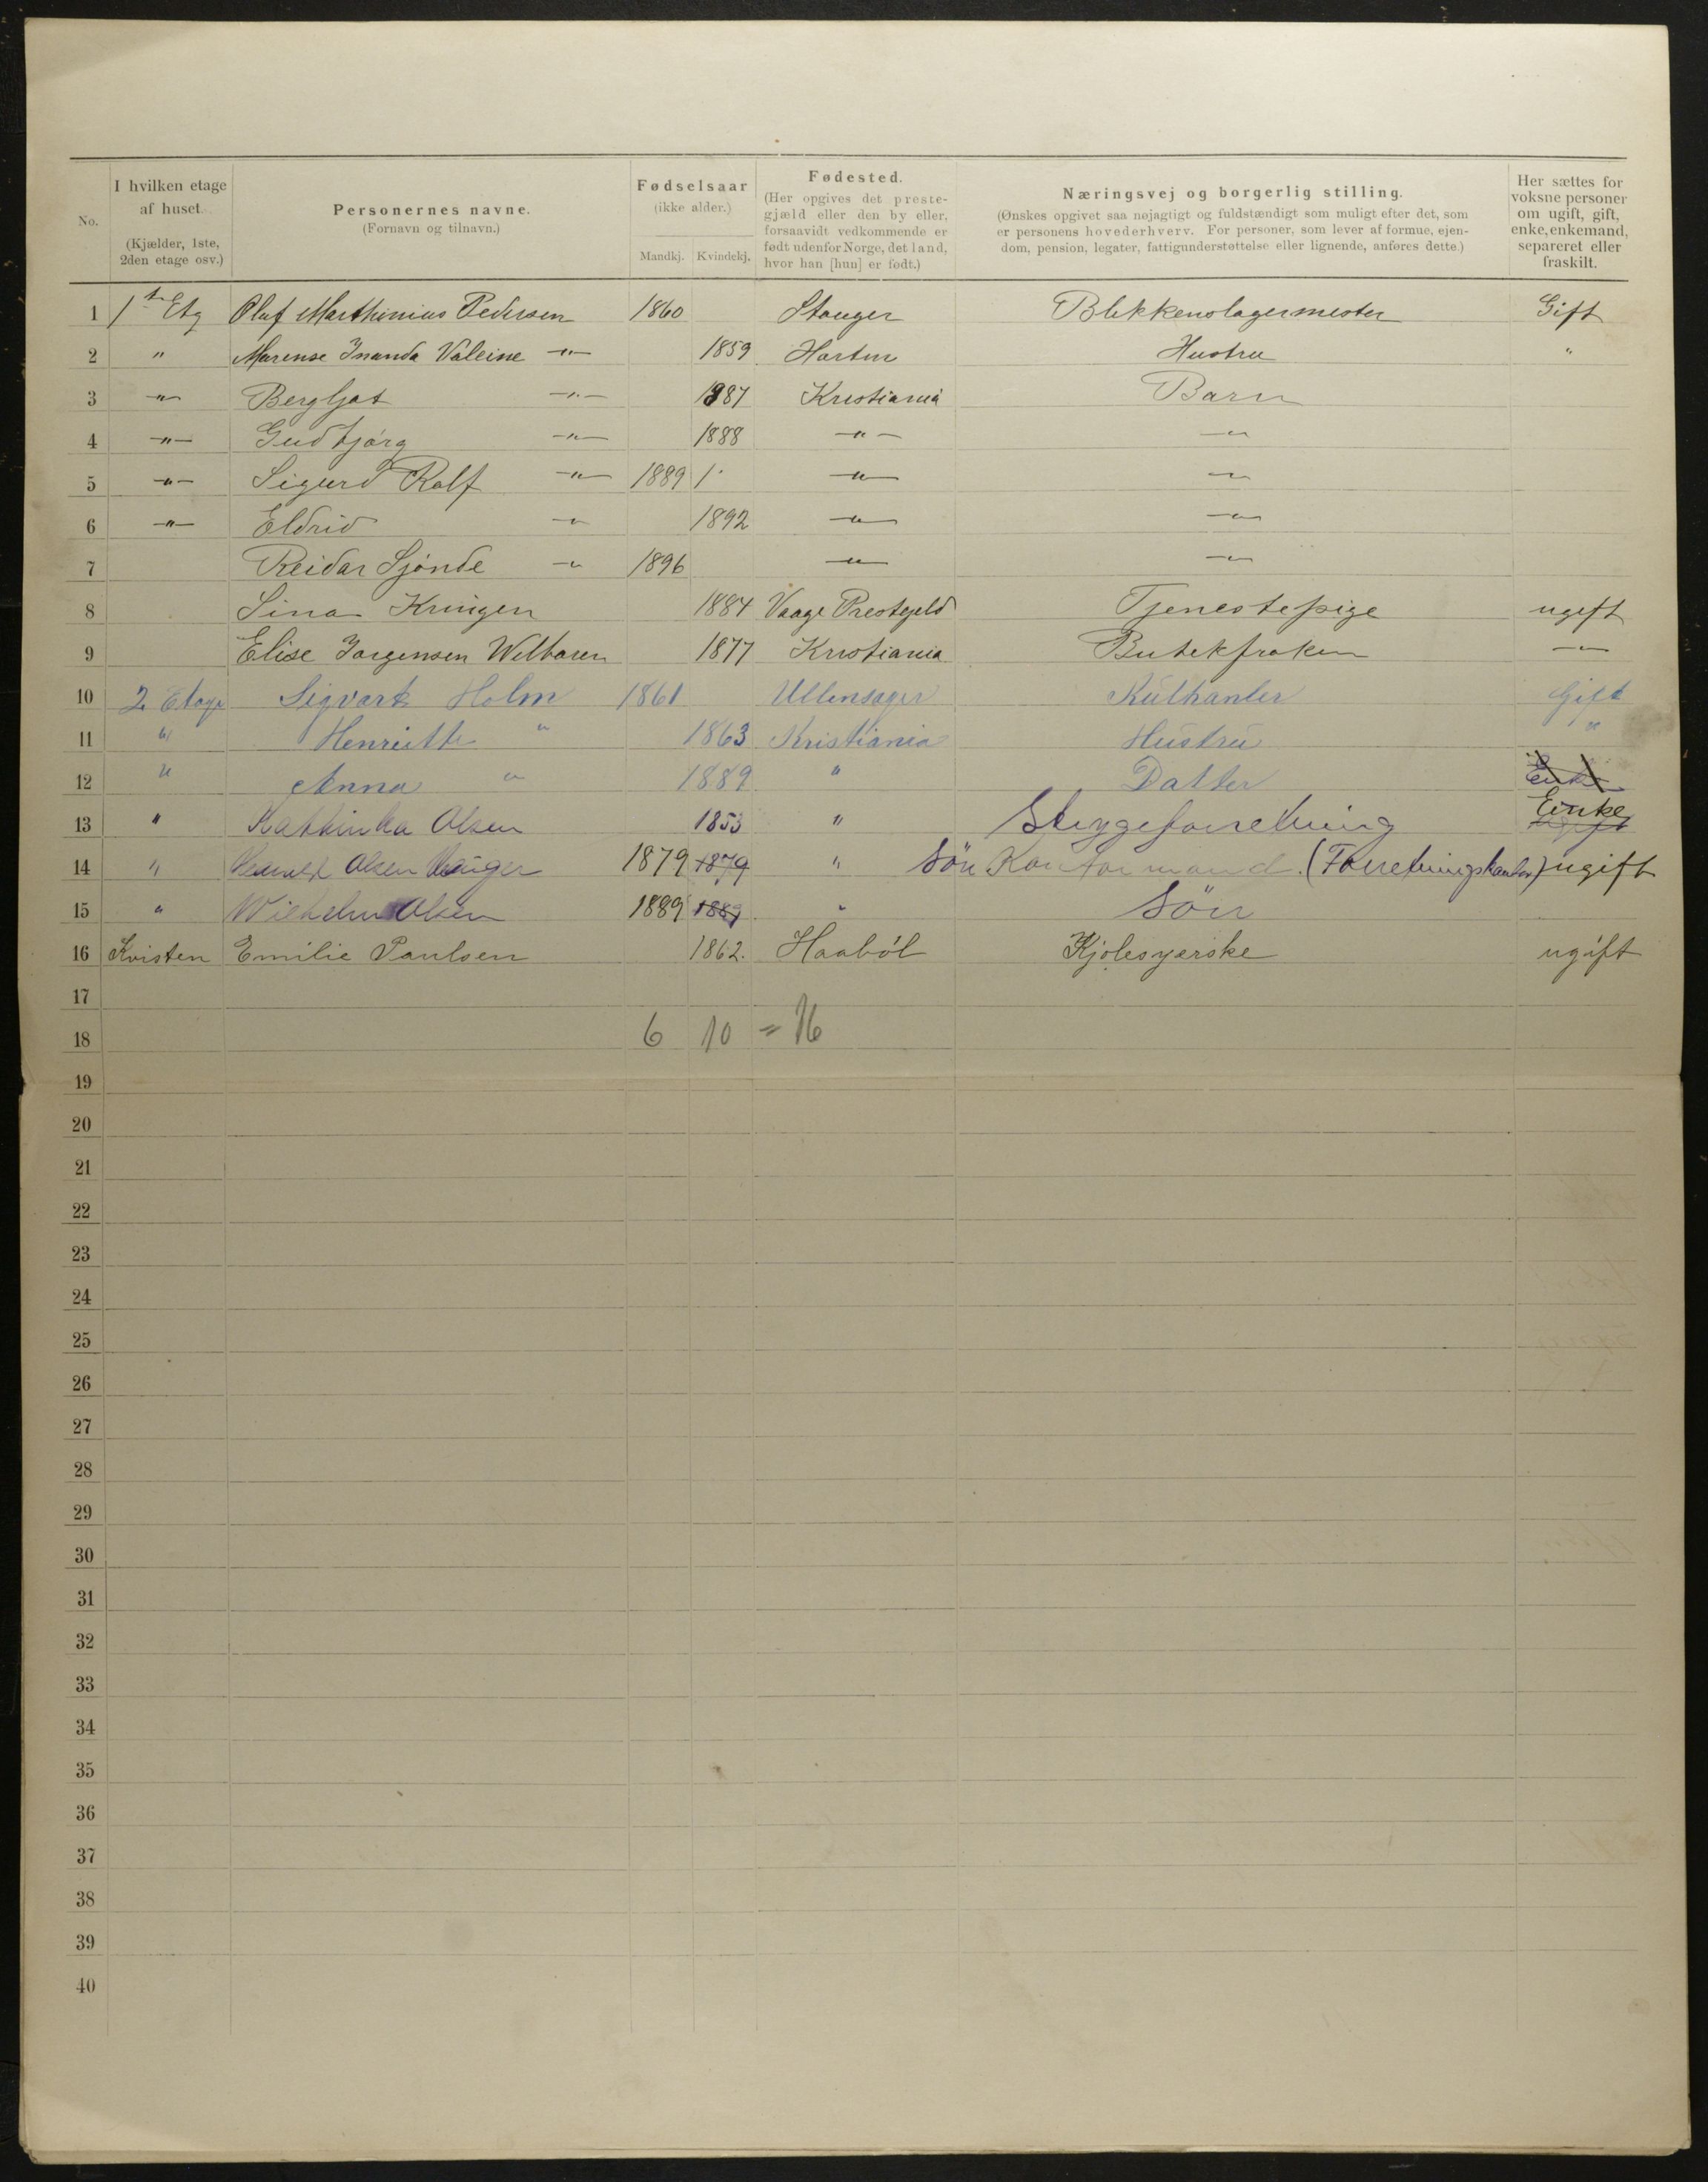 No.
I hvilken etage af huset. (Kjælder, 1ste, 2den etage osv.)
Personernes navne. (Fornavn og tilnavn.)
Fødselsaar (ikke alder.) Mandkj. Kvindekj.
Fødested. (Her opgives det prestegjæld eller den by eller, forsaavidt vedkommende er født udenfor Norge, det land, hvor han [hun] er født.)
Næringsvej og borgerlig stilling. (Ønskes opgivet saa nøjagtigt og fuldstændigt som muligt efter det, som er personens hovederhverv. For personer, som lever af formue, ejendom, pension, legater, fattigunderstøttelse eller lignende, anføres dette.)
Her sættes for voksne personer om ugift, gift, enke, enkemand, separeret eller fraskilt.
1 1ste Etg Oluf Marthinius Pedersen 1860 Stanger Blikkenslagermester Gift
2 " Marense Inanda Valeine -"- 1859 Horten Hustru "
3 -"- Bergljot -"- 1887 Kristiania Barn
4 -"- Gudbjørg -"- 1888 -"- -"-
5 -"- Sigurd Rolf -"- 1889 -"- -"-
6 -"- Eldrid -"- 1892 -"- -"-
7 Reidar Sjønde -"- 1896 -"- -"-
8 Sina Kringen 1884 Vaage Prestegjeld Tjenestepige ugift
9 Elise Jørgensen 1877 Kristiania Butikfrøken -"-
10 2 Etage Sigvart Holm 1861 Ullensager Kulhanler Gift
11 " Henriette " 1863 Kristiania Hustru "
12 " Anna " 1889 " Datter Enke
13 " Kathinka Olsen 1853 " Strygeforretning Enke
14 " Olsen 1879 1879 " Søn Kontormand. (Forretningskontor) ugift
15 " Wilhelm Olsen 1889 1889 " Søn
16 Kvisten Emilie Paulsen 1862. Haabøl Kjolesyerske ugift
17
18 6 10 = 16
19
20
21
22
23
24
25
26
27
28
29
30
31
32
33
34
35
36
37
38
39
40